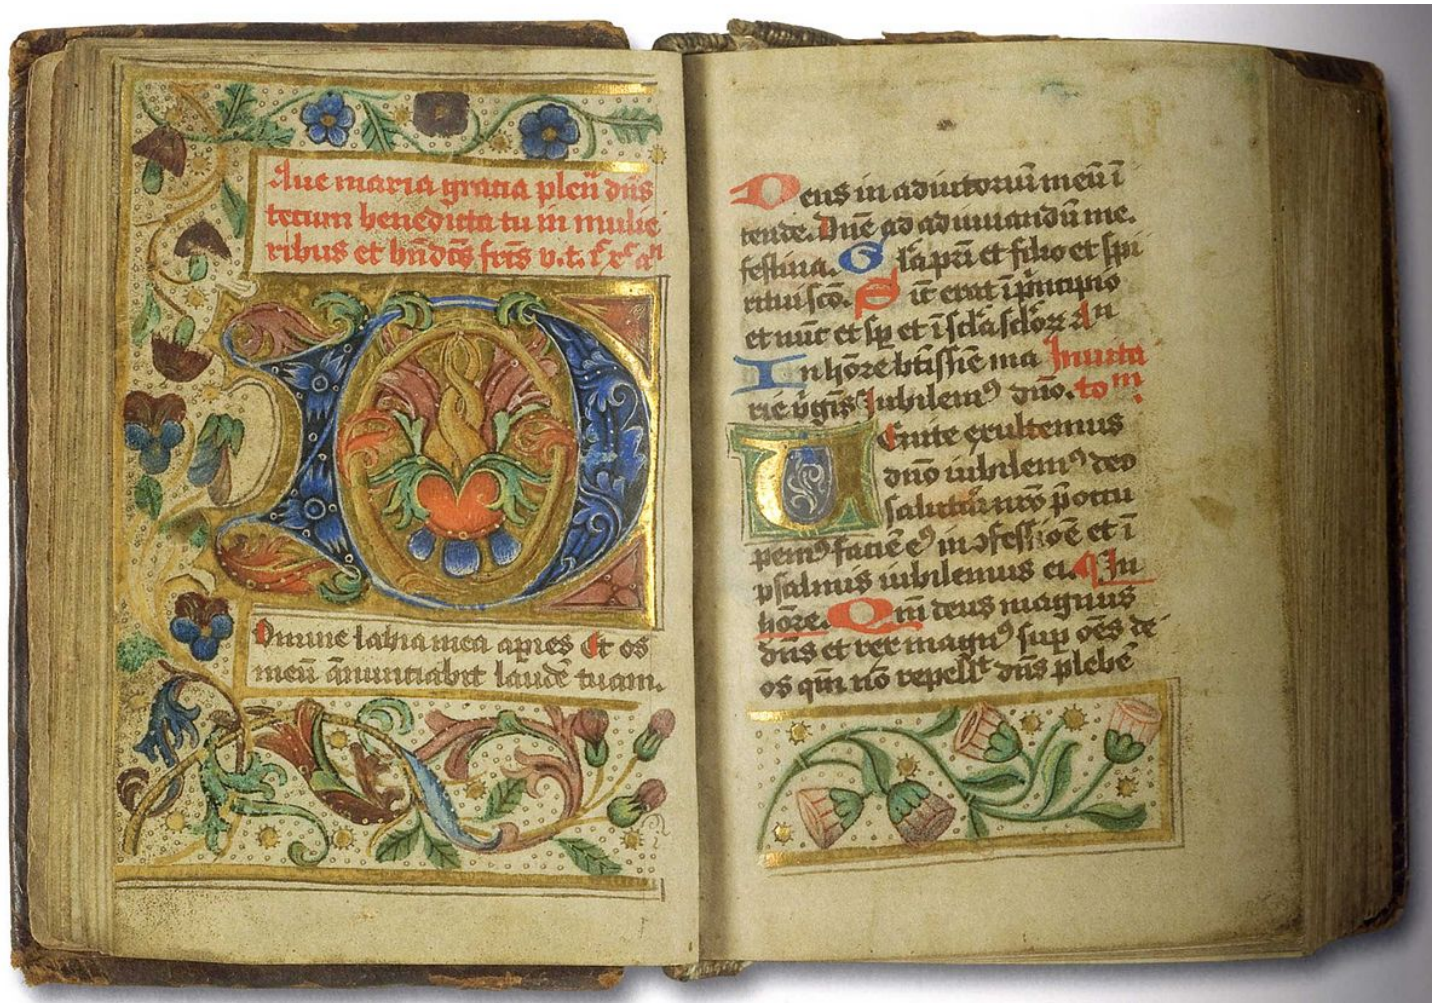 Aue maria gratia plen̄ dn̄s
tecum benedicta tu in mulie
ribus et bn̄dc̄s
Domine labia mea aperies Et os
meū annunciabit laudē tuam.
Deus in adiutoriū meū ī
tende. Dn̄e ad adiuuandū me.
festina. Gl̄a pr̄i et filio et spi
ritui sc̄o. Sic̄ erat ī pͥncipio
et nūc et sp̄ et ī scl̄a scl̄oꝝ an
In hōre btīssīe ma Inuita
rie v̄gīs Iubilemꝰ dn̄o. tom̄
Uenite exultemus
dn̄o iubilemꝰ deo
salutari nr̄o p̄occu
pemꝰ faciē eꝰ in ꝯfessiōē et ī
psalmis iubilemus ei. In
hōre. Qm̄ deus magnus
dn̄s et rex magnꝰ suꝑ oēs de
os qm̄ nō repellt dn̄s plebē